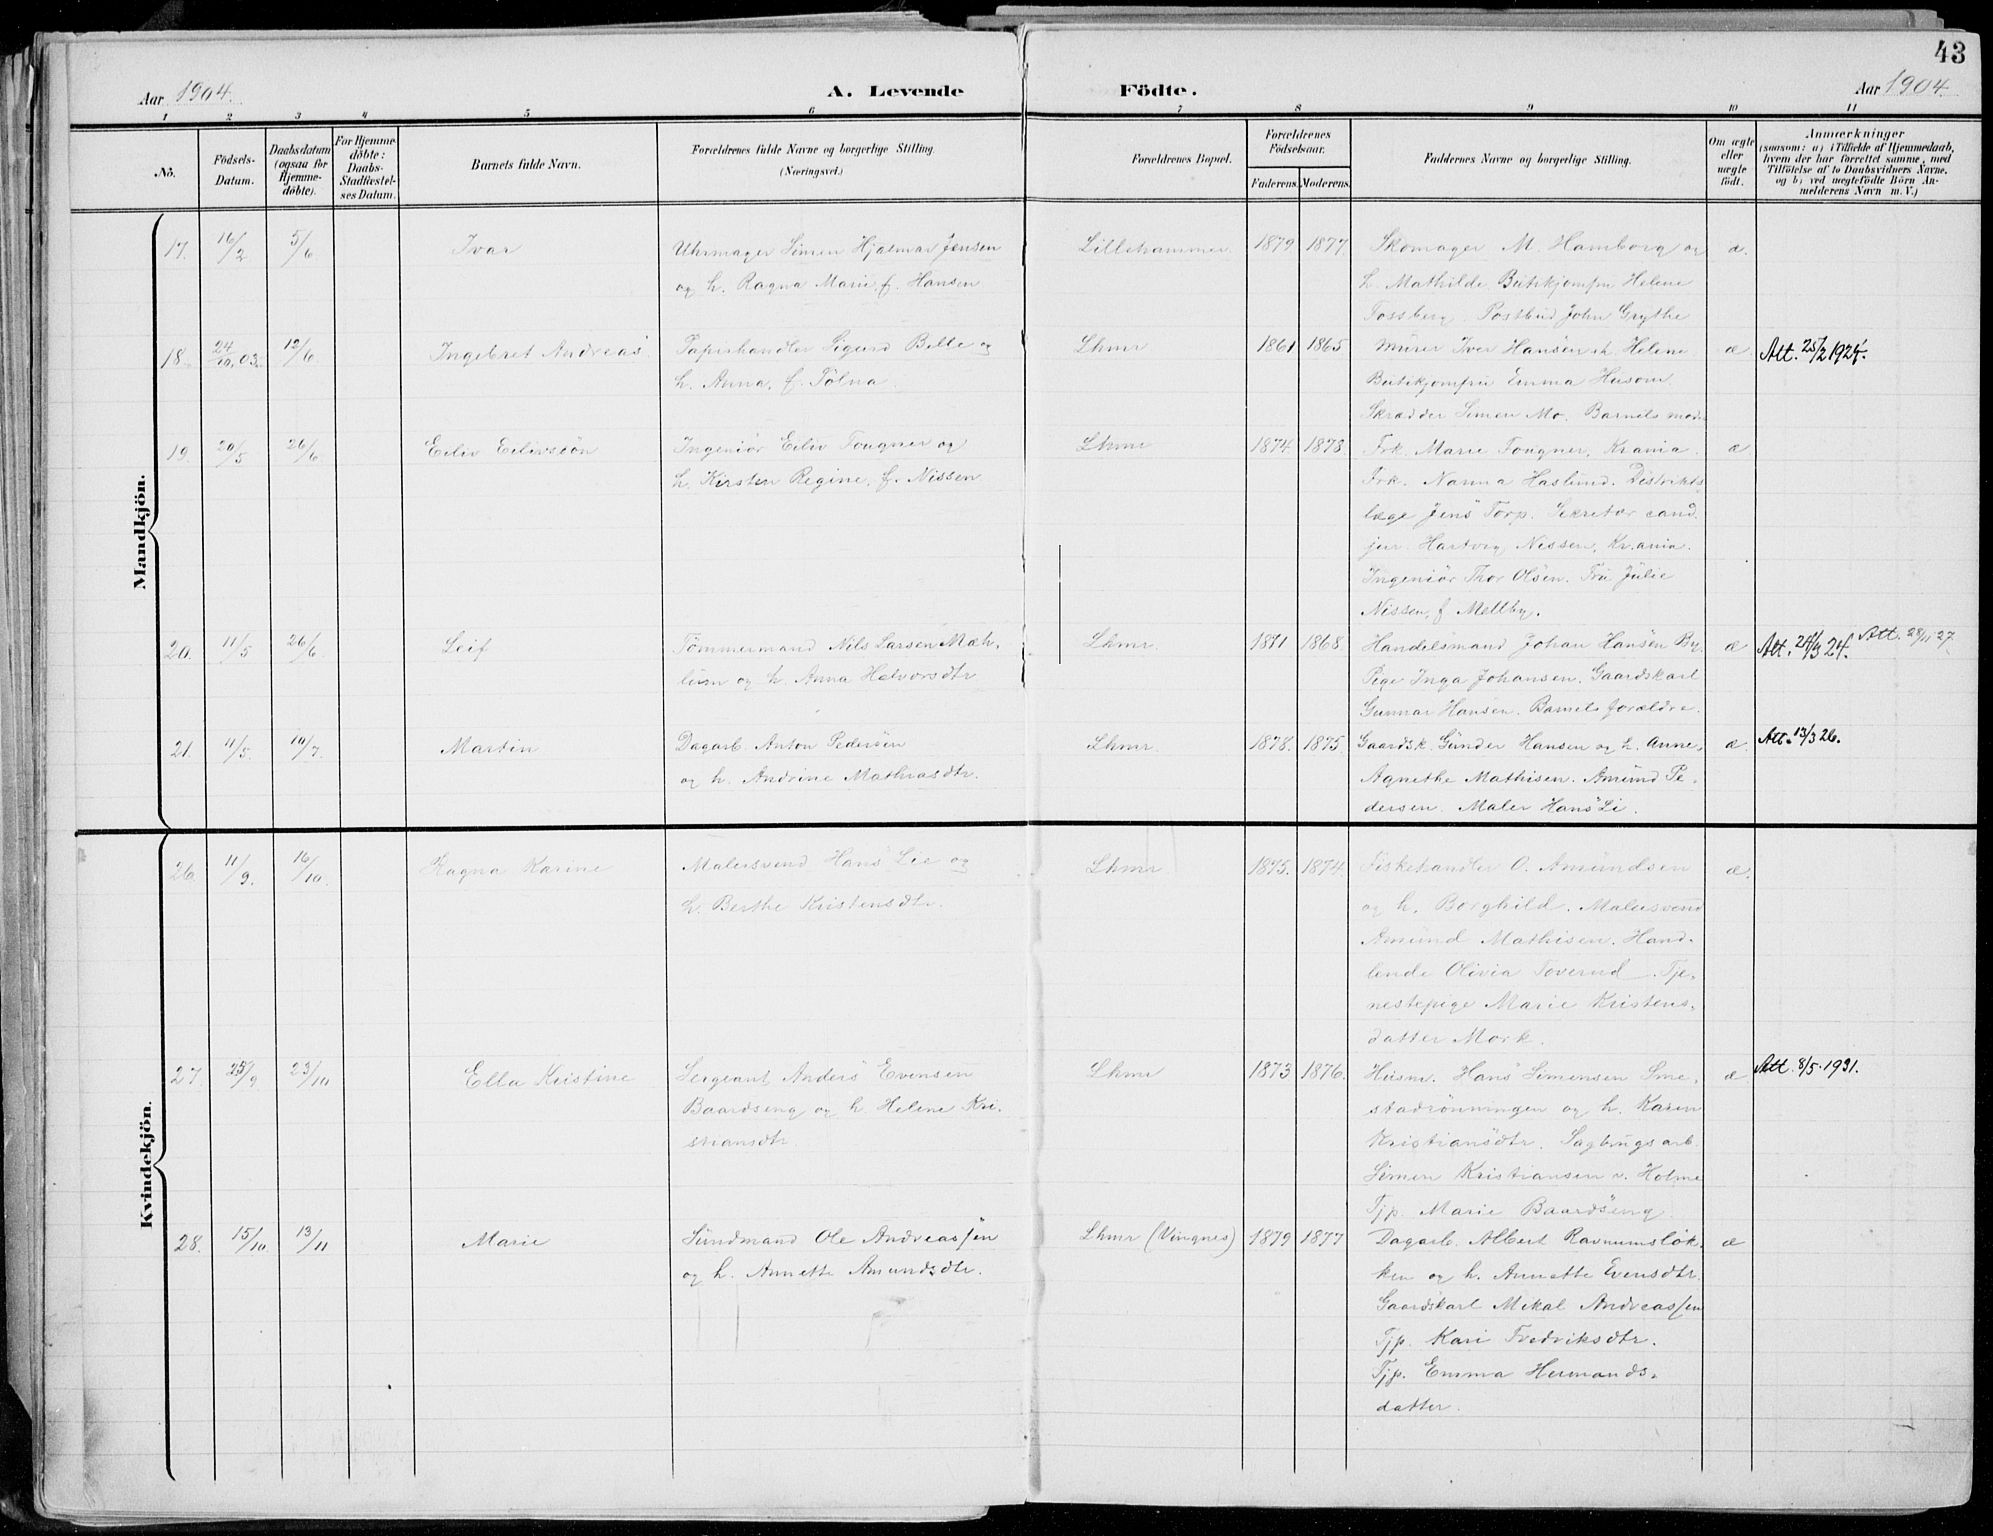 43
Aar 1904. A. Levende Födte. Aar 1904.
1 2 3 4 5 6 7 8 9 10 11
No.
Födsels-
Datum.
Daabsdatum
(ogsaa for
Hjemme-
döbte).
For Hjemme-
döbte:
Daabs-
Stadfæstel-
ses Datum.
Barnets fulde Navn.
Forældrenes fulde Navne og borgerlige Stilling.
(Næringsvei.)
Forældrenes Bopæl.
Forældrenes
Födselsaar.
Faderens. Moderens.
Faddernes Navne og borgerlige Stilling.
Om ægte
eller
uægte
födt.
Anmærkninger
(saasom: a) i Tilfælde af Hjemmedaab,
hvem der har forrettet samme, med
Tilföielse af to Daabsvidners Navne,
og b) ved uægtefödte Börn An-
melderens Navn m. V.)
Mandkjön.
17. 16/2 5/6 Ivar Uhrmager Simen Hjalmar Jensen Lillehammer. 1879 1877. Skomager M. Hamborg og æ.
og h. Ragna Marie, f. Hansen h. Mathilde Butikjomfru Helene
Fossberg. Postbud John Grythe
18. 24/10 03. 12/6 Ingebret Andreas Papirhandler Sigurd Belle og Lhmr 1861 1865 Murer Iver Hansen h. Helene æ Att. 25/2 1924.
h. Anna, f. Tølna Butikjomfru Emma Husom.
Skrædder Simen Mo. Barnets moder
19. 20/5 26/6 Eiliv Eilivsøn Ingeniör Eiliv Fougner og Lhmr 1874. 1878. Frk. Marie Fougner, Krania. æ
h. Kirsten Regine, f. Nissen Frk. Nanna Haslund. Distrikts
læge Jens Torp. Sekretær cand.
jur. Hartvig Nissen, Kr.ania.
Ingeniör Thor Olsen. Fru Julie
Nissen, f. Mellby.
20. 11/5 26/6 Leif Tömmermand Nils Larsen Mæh- Lhmr. 1871 1868. Handelsmand Johan Hansen By. æ Att. 24/3 24. Att. 28/11 27.
lum og h. Anna Halvorsdtr Pige Inga Johansen. Gaardskarl
Gunnar Hansen. Barnets forældre.
21. 11/5. 10/7. Martin Dagarb. Anton Pedersen Lhmr. 1878. 1875. Gaardsk. Gunder Hansen og h. Anne. æ. Att. 13/3 26.
og h. Andrine Mathiasdtr. Agnethe Mathisen. Amund Pe-
dersen. Maler Hans Li.
Kvindekjön.
26. 11/9. 16/10. Ragna Karine Malersvend Hans Lie og Lhmr 1875. 1874. Fiskehandler O. Amundsen æ.
h. Berthe Kristensdtr. og h. Borghild. Malersvend
Amund Mathisen. Hand-
lende Olivia Toverud. Tje-
nestepige Marie Kristens-
datter Mork.
27. 25/9 23/10 Ella Kristine Sergeant Anders Evensen Lhmr 1873 1876. Husm. Hans Simensen Sme- æ. Att. 8/5. 1931.
Baardseng og h. Helene Kri- stadrönningen og h. Karen
stiansdtr. Kristiansdtr. Sagbrugsarb.
Simen Kristiansen v. Holme
Tjp. Marie Baardseng.
28. 15/10. 13/11 Marie Sundmand Ole Andreassen Lhmr (Vingnes) 1879 1877 Dagarb. Albert Ravnumslök- æ
og h. Annette Amundsdtr. ken og h. Annette Evensdtr.
Gaardskarl Mikal Andreassen
Tjp. Kari Fredriksdtr.
Tjp. Emma Hermands-
datter.